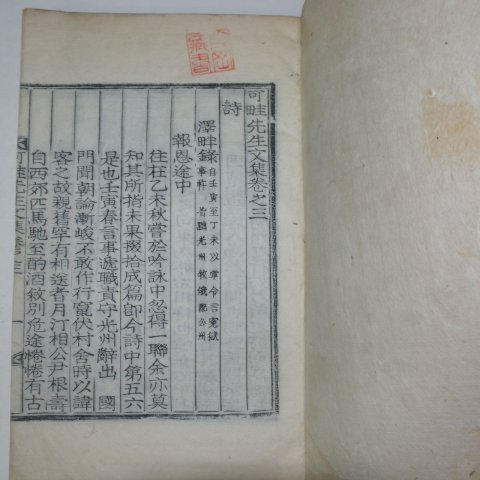 可畦先生文集卷之三
詩
澤畔錄自壬寅至丁未以章令言冤獄
事忤旨黜光州牧俄配公州
報恩途中
往在乙未秋嘗於吟詠中忽得一聯余亦莫
知其所指未果掇拾成篇卽今詩中第五六
是也壬寅春言事遞職責守光州辭出 國
門聞朝論漸峻不敢作行竄伏村舍時以諱
客之故親舊罕有相送者月汀相公尹根壽
自西郊匹馬馳至酌酒敘別危途惓惓有古
可畦先生文集 卷三 一